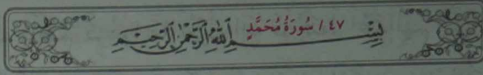 ٤٧ / سُورَةُ مُحَمَّدٍ
بِسْمِ اللَّهِ الرَّحْمَٰنِ الرَّحِيمِ